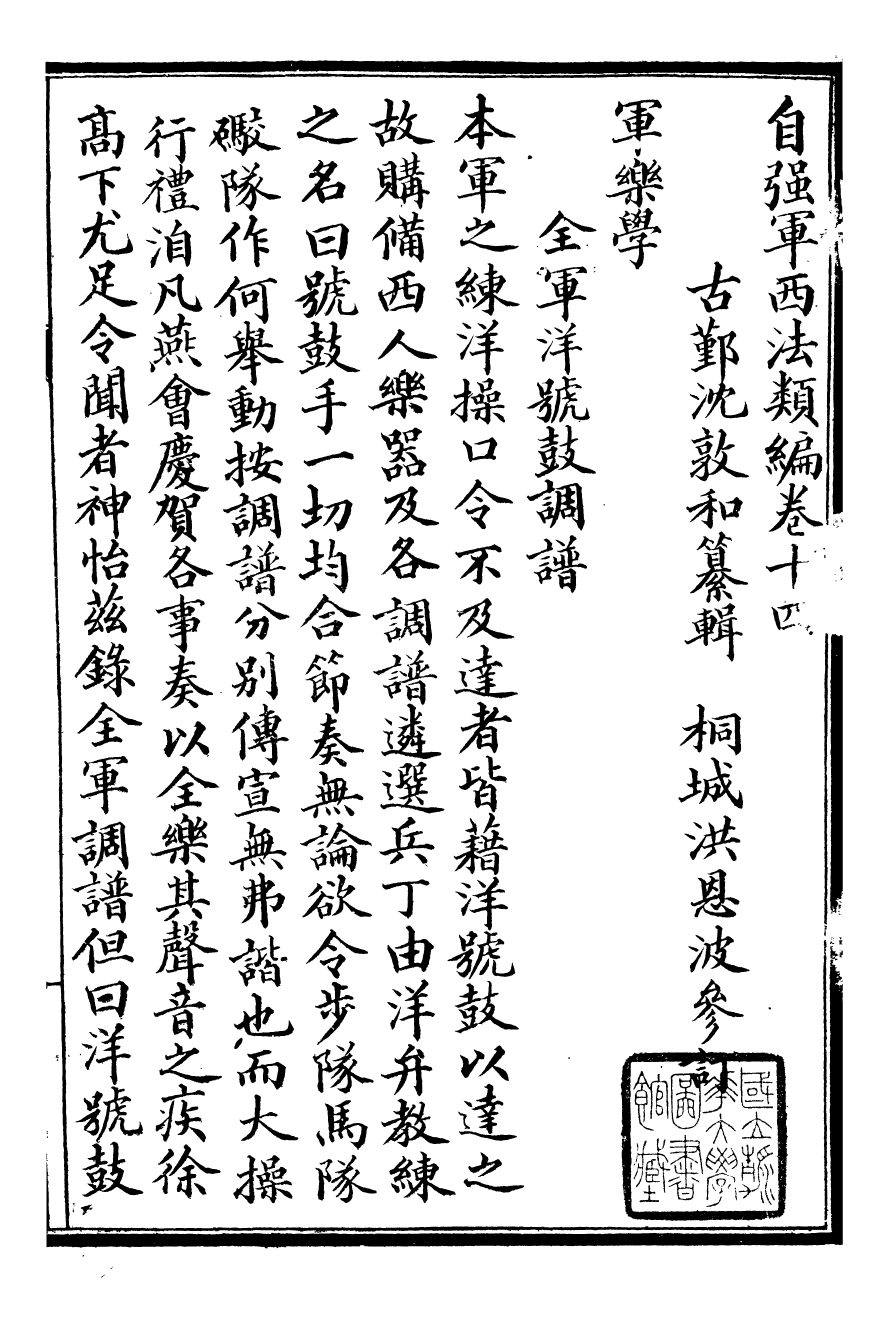 自强軍西法類編卷十四
古鄞沈敦和纂輯 桐城洪恩波參訂
軍樂學
全軍洋號鼓調譜
本軍之練洋操口令不及達者皆藉洋號鼓以達之
故購備西人樂器及各調譜遴選兵丁由洋弁教練
之名曰號鼓手一切均合節奏無論欲令步隊馬隊
礮隊作何舉動按調譜分別傳宣無弗諧也而大操
行禮洎凡燕會慶賀各事奏以全樂其聲音之疾徐
高下尤足令聞者神怡茲錄全軍調譜但曰洋號鼓
國立清華大學圖書館藏